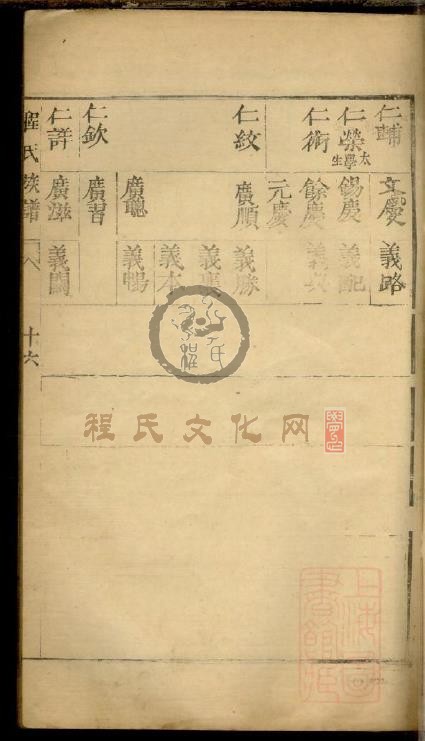 仁輔 文慶 義路
仁榮 太學生 錫慶 義配
仁術 餘慶
元慶
仁紋 廣順 義勝
義本
廣聰 義暢
仁欽 廣習
仁詳 廣滋
程氏族譜 八 十六
程氏文化网
上海圖書館藏